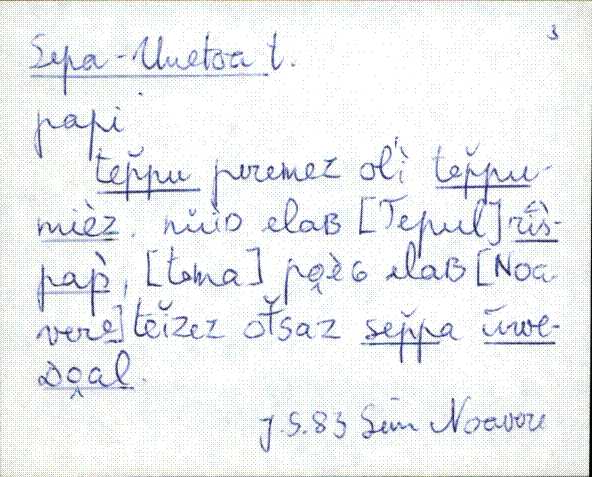 3
Sepa-Uuetoa t.
papi
tep̆pu peremez oľi tep̆pu-
mièz. nüüD elaB [Tepul] rīs-
pap̀, [toma] pa̭èG elaB [Noa-
vere] teĭzez ot̆saz sep̆pa ūwe-
Doal.
Noavere